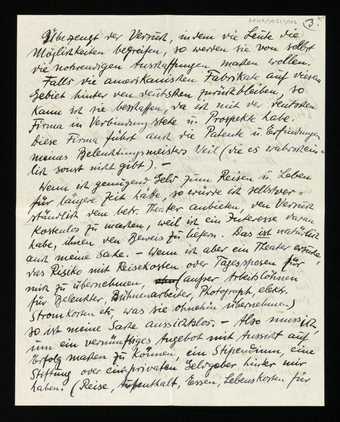 Überzeugt der Versuch, indem die Leute die
Möglichkeiten begreifen, so werden sie von selbst
die notwendigen Anschaffungen machen wollen.
Falls die amerikanischen Fabrikate auf diesem
Gebiet hinter den deutschen zurückbleiben, so
kann ich sie beschaffen, da ich mit der deutschen
Firma in Verbindung stehe u. Prospekte habe.
Diese Firma führt auch die Patente u. Erfindungen
meines Beleuchtungsmeisters Veil (die es wahrschein-
lich sonst nicht gibt). –
Wenn ich genügend Geld zum Reisen u. Leben
für längere Zeit hätte, so würde ich selbstver-
ständlich dem betr. Theater anbieten, den Versuch
kostenlos zu machen, weil ich ein Interesse daran
habe, ihnen den Beweis zu liefern. Das ist natürlich
auch meine Sache. – Wenn ich aber ein Theater
das Risiko mit Reisekosten oder Tagesspesen für
mich zu übernehmen, (ausser Arbeitslöhnen
für Beleuchter, Bühnenarbeiter, Photograph, elektr.
Stromkosten etc was sie ohnehin übernehmen)
so ist meine Sache aussichtslos. – Also muss ich,
um ein vernünftiges Angebot mit Aussicht auf
Erfolg machen zu können, ein Stipendium, eine
Stiftung oder einen privaten Geldgeber hinter mir
haben. (Reise, Aufenthalt, Essen, Lebenskosten für